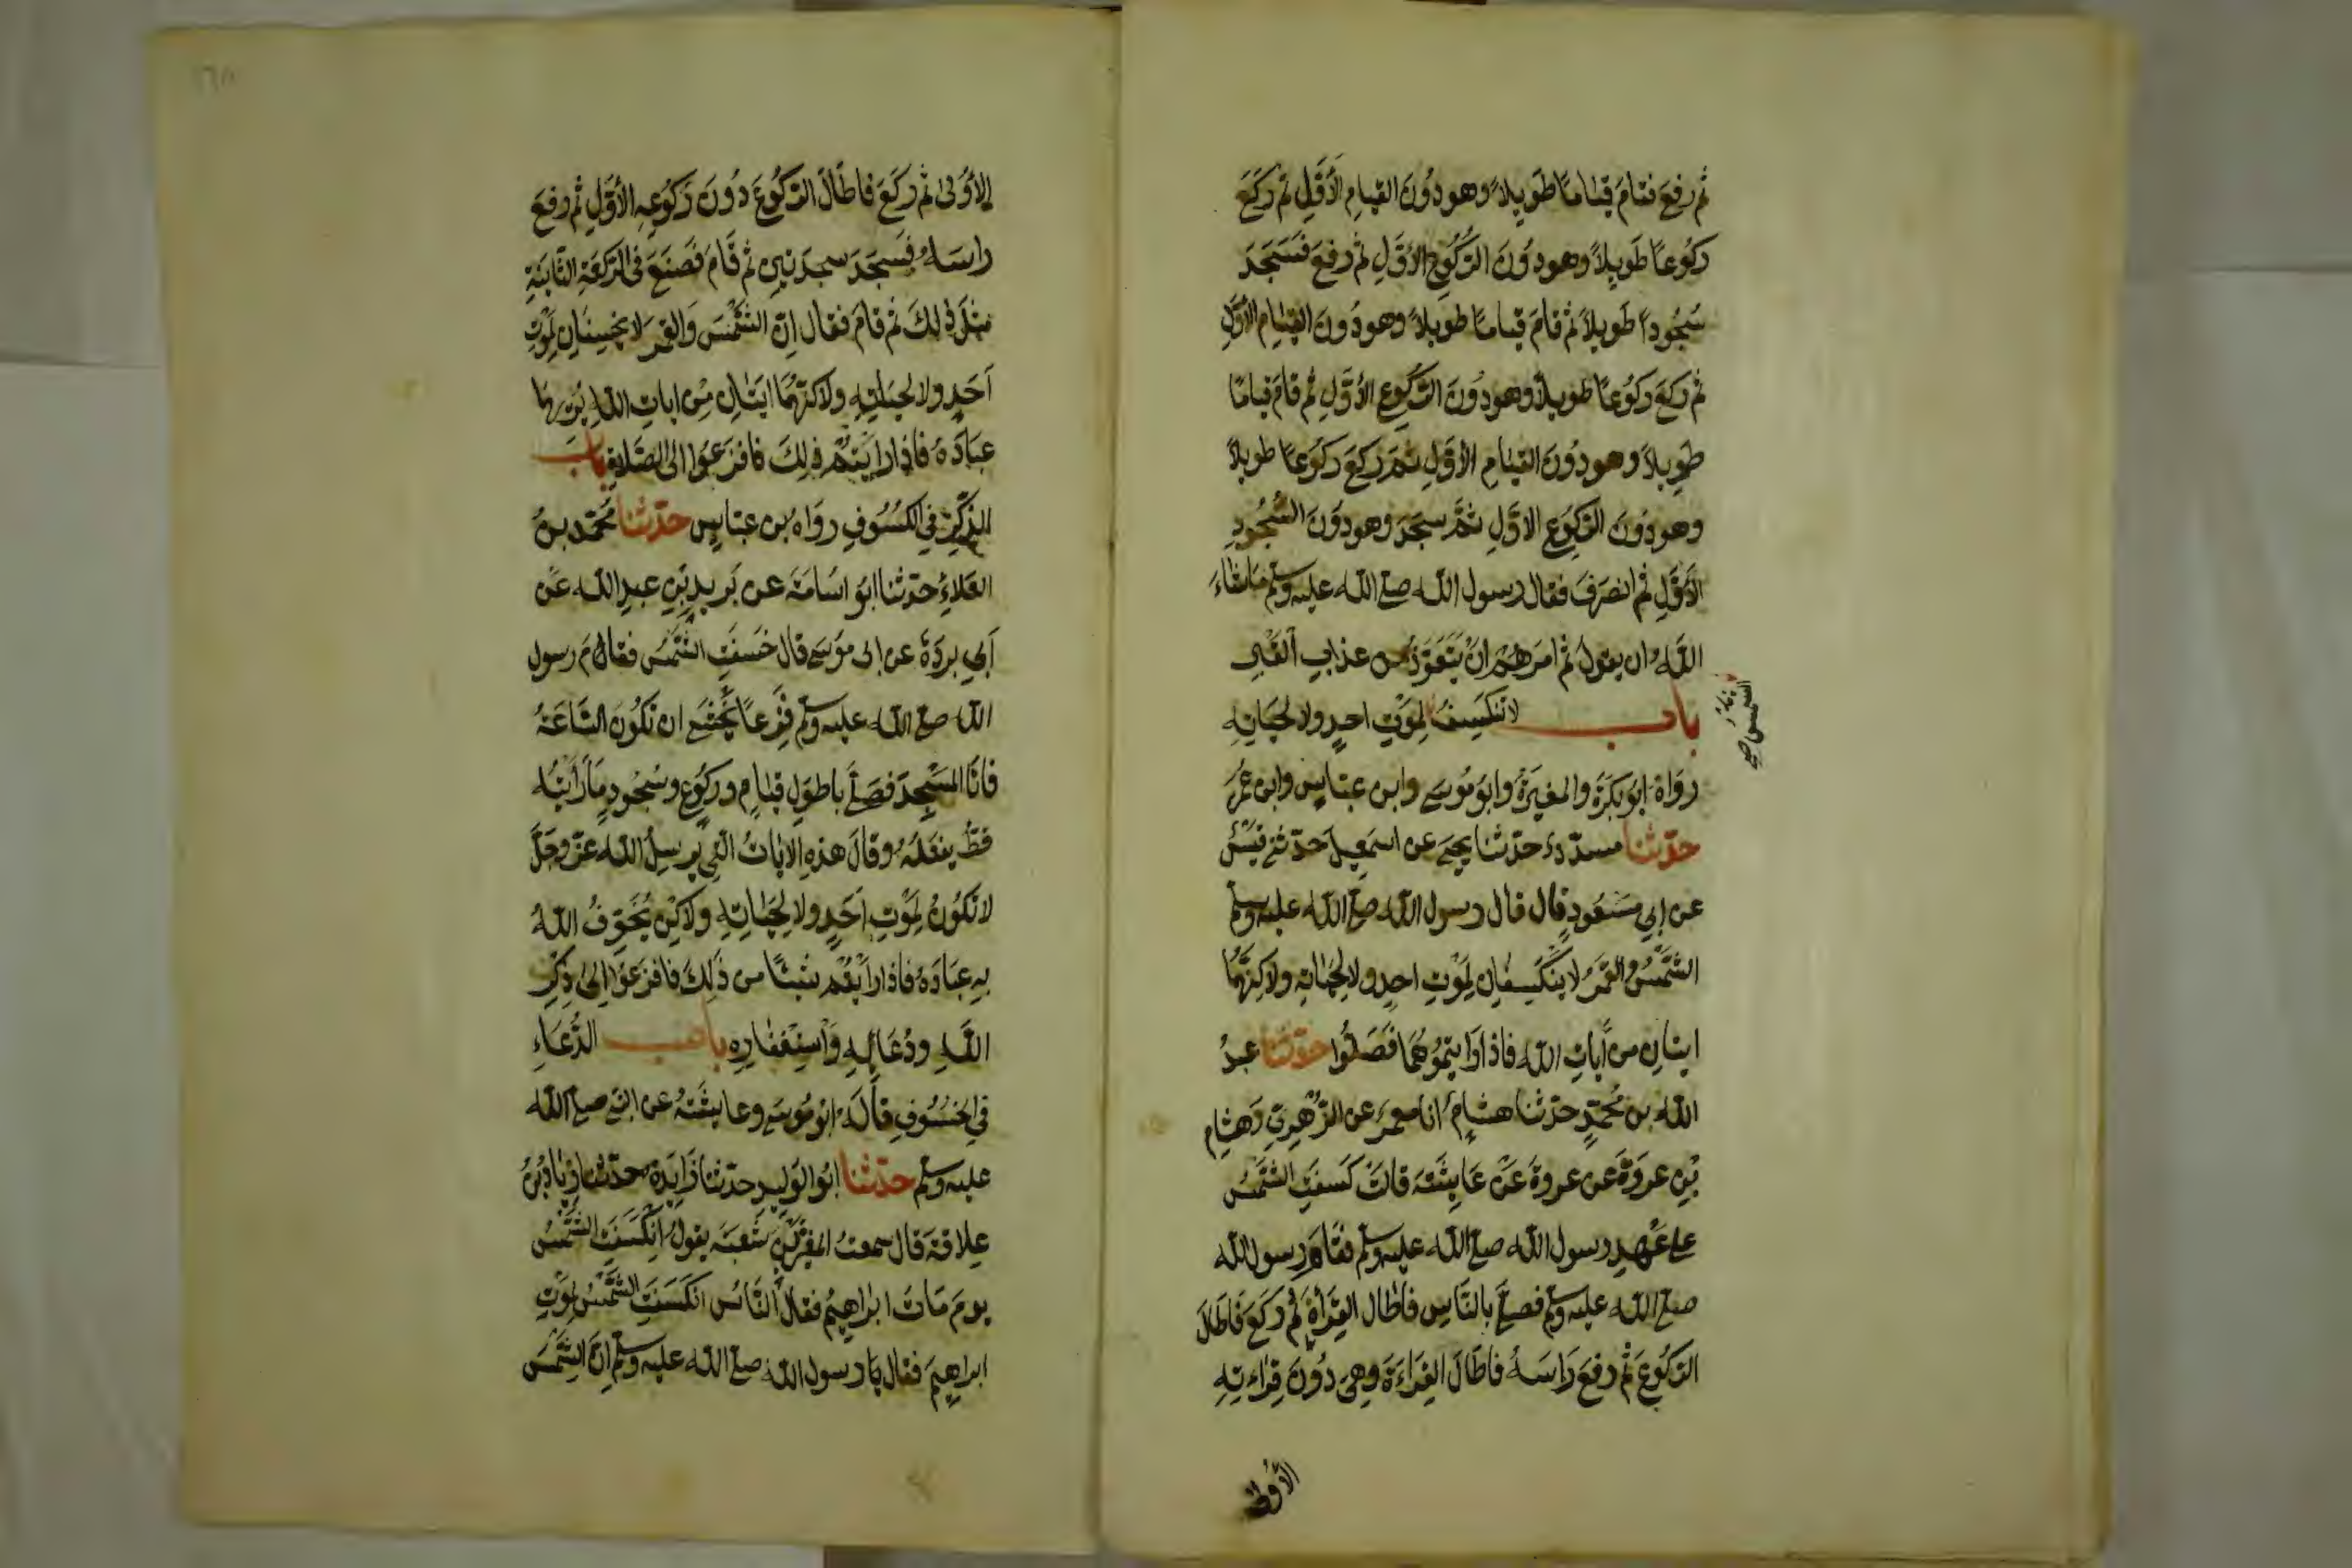 ثم رفع فقام قِيٰامًا طَوِيلاً وهو دُونَ القيامِ الأَوَّلِ ثم رَكَعَ
ركُوعًا طَوِيلاً وهو دُونَ الرُّكُوعِ الأَوَّلِ ثم رفعَ فَسَجَدَ
سُجُودًا طَويلاً ثم قامَ قيامًا طويلاً وهو دُونَ القِيٰامِ الأوّلِ
ثم ركعَ ركُوعًا طويلاً وهو دُونَ الرّكُوعِ الأوّلِ ثم قامَ قيامًا
طَوِيلاً وهو دُونَ القيٰامِ الأوّلِ ثمّ رَكعَ ركُوعًا طويلاً
وهو دُونَ الرّكُوعِ الاوّلِ ثمَّ سجَدَ وهو دُونَ السُّجُودِ
الأوّلِ ثم انصَرَفَ فقال رسول الله صلى الله عليه وسلم مَا شٰاءَ
اللهُ ان يقولَ ثم امَرَهُمْ انْ يَتَعَوَّذُوا من عذابِ القبرِ
باب لا تنكَسِفُ لِمَوْتِ احدٍ ولا لحيَاتِهِ
الشمس
صح
رَوَاهُ ابُو بَكرَةَ والمغيرَةُ وابُو مُوسى وابن عبّاسٍ وابن عُمَرَ
حدّثنا مسدّدٌ حدّثنا يحيى عن اسمعِيلَ حدّثني قَيْسٌ
عن ابي مَسْعُودٍ قال قال رسول الله صلى الله عليه وسلم
الشّمْسُ والقَمَرُ لا ينكَسِفٰانِ لِمَوْتِ احدٍ ولا لِحيٰاتِهِ ولاكِنّهُمَا
ايتَانِ من آياتِ الله فاذا رَايتمُوهُمَا فَصَلُّوا حدّثنا عبدُ
الله بن مُحَمّدٍ حدّثنا هشامٌ انا معمرٌ عن الزّهْرِيِّ وَهشامِ
بْنِ عروَةَ عن عروةَ عَنْ عَايِشَةَ قالتْ كَسَفَتِ الشّمسُ
على عَهْدِ رسول الله صلى الله عليه وسلم فقامَ رسول الله
صلى الله عليه وسلم فصلّى بالنّاسِ فاطال القِرَاةَ ثم ركَعَ فَاَطَالَ
الرّكُوعَ ثم رفعَ رَاسَهُ فاطَالَ القِرَاءَةَ وهِيَ دُونَ قِرَاءتِهِ
الأولى
الأُوْلىٰ ثم ركَعَ فاطَالَ الرّكُوعَ دُونَ رَكُوعِهِ الأوّلِ ثم رفعَ
راسَهُ فَسجَدَ سجدَتيْنِ ثم قَامَ فَصَنَعَ في الرّكعَةِ الثّانيَةِ
مِثلَ ذٰلِكَ ثم قامَ فقال انّ الشّمْسَ وَالقمرَ لا يخسِفَانِ لِمَوْتِ
اَحَدٍ ولا لحيَاتِهِ ولاكنّهُمَا ايَتَانِ مِنْ اياتِ اللهِ يُريهمَا
عبَادَهُ فاذا رايتُم ذٰلِكَ فافزَعُوا الى الصّلاةِ باب
الذّكرِ في الكسُوفِ روَاهُ بن عبّاسٍ حدّثنا مُحَمّد بنُ
العَلاءِ حدّثنا ابُو اسَامَةَ عن بُرَيدِ بْنِ عبدِ الله عَن
اَبي بردَةَ عن ابي مُوسى قال خَسَفَتِ الشّمْسُ فقامَ رسول
الله صلى الله عليه وسلم فَزِعًا يَخْشى ان تكُونَ السَّاعَةُ
فاتَا المَسْجِدَ فَصَلّى باطوَلِ قيٰامٍ وركُوعٍ وسُجُودٍ مَا رَأيتُهُ
قطُّ يفعَلُهُ وقالَ هذهِ الآيَاتُ التِي يُرسِلُ الله عزّ وجَلّ
لا تَكُونُ لِمَوْتِ اَحَدٍ ولا لِحَيٰاتِهِ ولاكِنْ يُخَوِّفُ اللهُ
بهِ عِبَادَهُ فاذا رايتُم شيئًا من ذَلِكَ فافزَعُوا اِلىٰ ذِكْرِ
اللهِ ودُعَائِهِ وَاسْتِغْفٰارِهِ باب الدُّعَاءِ
في الخسُوفِ قَالَهُ ابُو مُوسى وعايشَةُ عن النبي صلى الله
عليه وسلم حدّثنا ابُو الوَليدِ حدّثنا زَايِدَةُ حدّثنا زيٰادُ بنُ
عِلاقةَ قال سمعتُ المغيرَةَ بْنَ شعبَةَ يقولُ انْكَسَفَتِ الشّمْسُ
يومَ مَاتَ ابراهِيمُ فقالَ النّاسُ انكَسَفَتِ الشّمْسُ لمَوْتِ
ابراهِيمَ فقال يا رسول الله صلى الله عليه وسلم انّ الشّمسَ